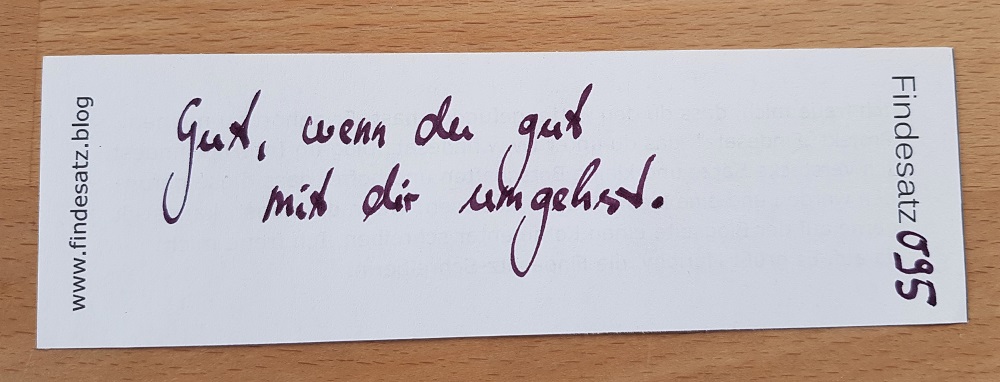 www.findesatz.blog
Gut, wenn du gut
mit dir umgehst.
Findesatz 095